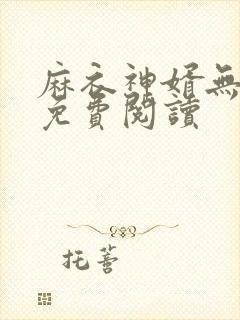 麻衣神婿無
免費閱讀
托薈